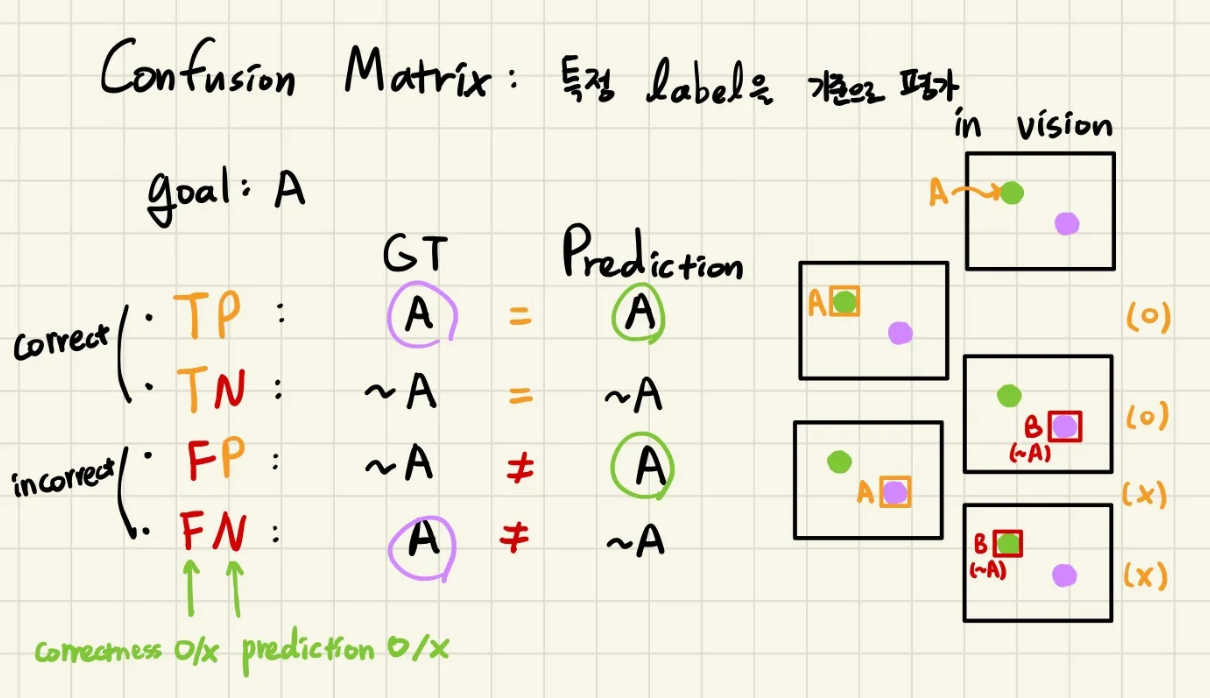 Confusion Matrix : 특정 label을 기준으로 평가
in vision
goal : A
A
GT Prediction
correct
· TP : A = A
A
(O)
· TN : ~A = ~A
B
(~A)
(O)
incorrect
· FP : ~A ≠ A
A
(X)
· FN : A ≠ ~A
B
(~A)
(X)
correctness O/X prediction O/X